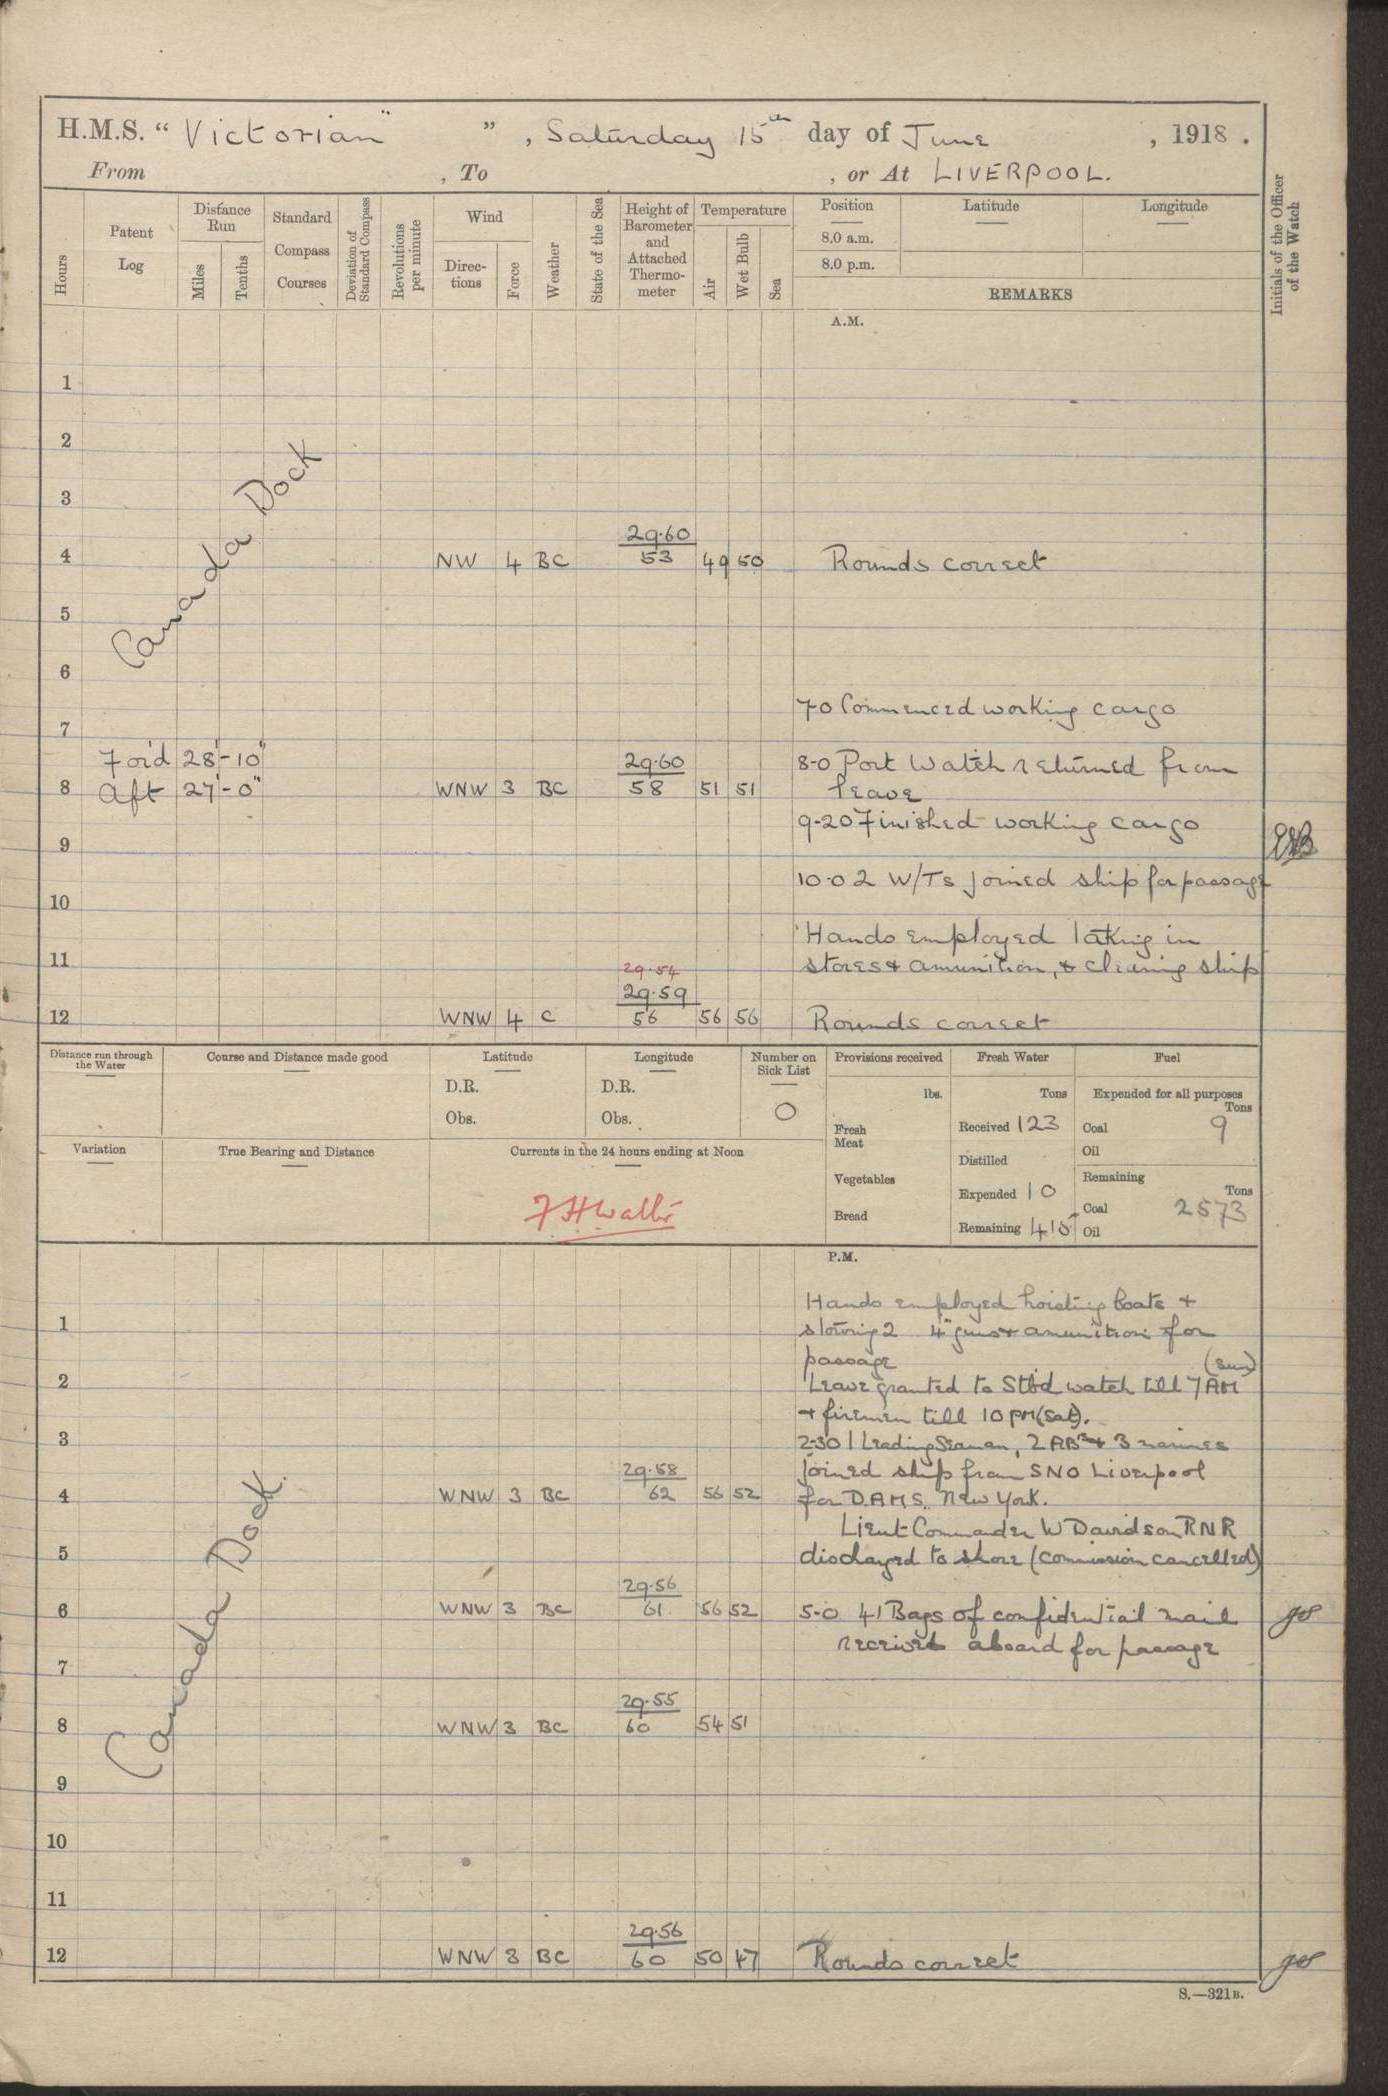 H.M.S. "Victorian" ", Saturday 15th day of June, 1918.
From , To , or At LIVERPOOL.
Hours
Patent
Log
Distance
Run
Miles
Tenths
Standard
Compass
Courses
Deviation of
Standard Compass
Revolutions
per minute
Wind
Direc-
tions
Force
Weather
State of the Sea
Height of
Barometer
and
Attached
Thermo-
meter
Temperature
Air
Wet Bulb
Sea
Position
8.0 a.m.
8.0 p.m.
Latitude
Longitude
REMARKS
Initials of the Officer
of the Watch
A.M.
1
2
3
Canada Dock
29.60
4 NW 4 BC 53 49 50 Rounds correct
5
6
7.0 Commenced working cargo
7
For'd 28'-10" 29.60 8-0 Port Watch returned from
8 Aft 27'-0" WNW 3 BC 58 51 51 leave
9-20 Finished working cargo
9
10-0 2 W/Ts joined ship for passage
10
Hands employed taking in
11 stores & amunition, & cleaning ship
29.54
29.59
12 WNW 4 C 56 56 56 Rounds correct
Distance run through
the Water
Course and Distance made good
Latitude
D.R.
Obs.
Longitude
D.R.
Obs.
Number on
Sick List
0
Provisions received
lbs.
Fresh
Meat
Vegetables
Bread
Fresh Water
Tons
Received 123
Distilled
Expended 10
Remaining 415
Fuel
Expended for all purposes
Tons
Coal 9
Oil
Remaining
Tons
Coal 2573
Oil
Variation
True Bearing and Distance
Currents in the 24 hours ending at Noon
P.M.
Hands employed hoisting boats &
1 stowing 2 4" guns & amunition for
passage (sun)
2 Leave granted to Stbd watch till 7 AM
& firemen till 10 PM (Sat).
3 2-30 1 Leading Seaman, 2 ABs & 3 marines
29.58 joined ship from SNO Liverpool
4 WNW 3 BC 62 56 52 for D.A.M.S. New York.
Lieut-Commander W Davidson RNR
5 discharged to shore (commission cancelled)
29.56
6 WNW 3 BC 61 56 52 5-0 41 Bags of confidential mail
received aboard for passage
7
Canada Dock
29.55
8 WNW 3 BC 60 54 51
9
10
11
29.56
12 WNW 3 BC 60 50 47 Rounds correct
S.—321B.